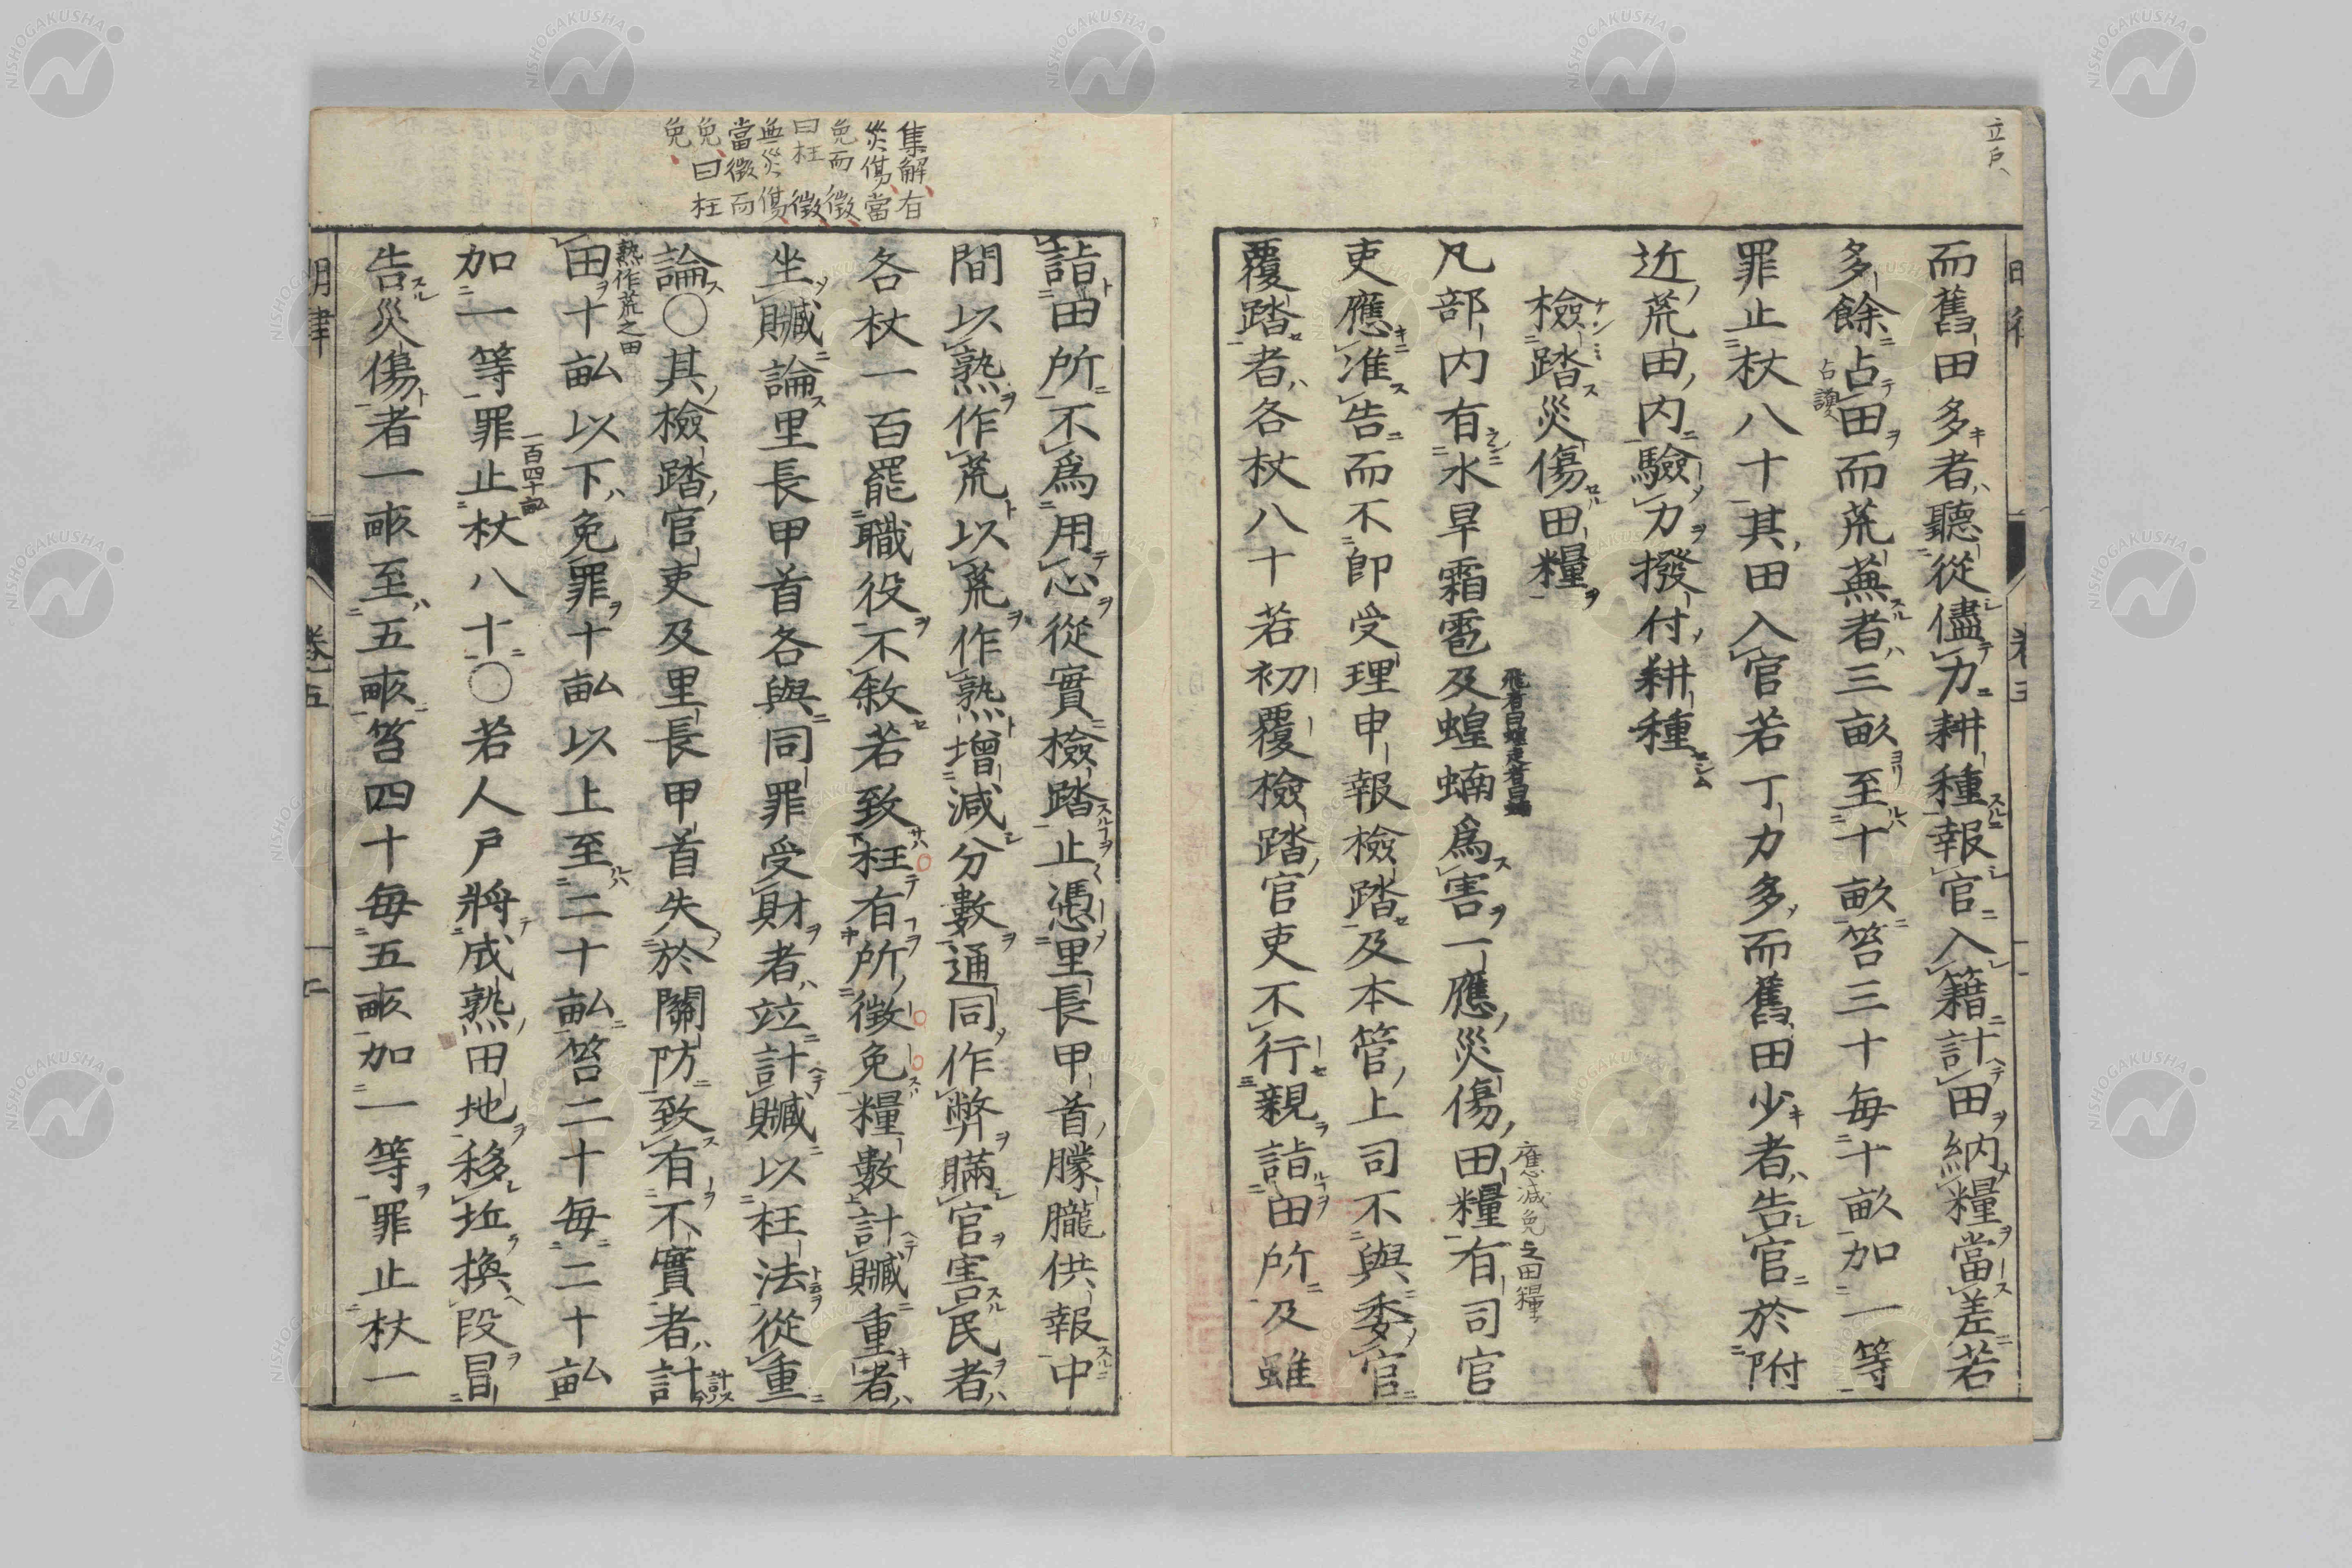 立戶
而舊田多者聽從儘力耕種報官入籍計田納糧當差若
多餘占田而荒蕪者三畝至十畝笞三十每十畝加一等
罪止杖八十其田入官若丁力多而舊田少者告官於附
近荒田內驗力撥付耕種
檢踏災傷田糧
凡部內有水旱霜雹及蝗蝻爲害一應災傷田糧有司官
飛者曰蝗走者曰蝻
應減免之田糧
吏應准告而不卽受理申報檢踏及本管上司不與委官
覆踏者各杖八十若初覆檢踏官吏不行親詣田所及雖
集解有
災傷當
免而徵
曰枉徵
無災傷
當徵而
免曰枉
免
詣田所不爲用心從實檢踏止憑里長甲首朦朧供報中
間以熟作荒以荒作熟增減分數通同作弊瞞官害民者
各杖一百罷職役不敘若致枉有所徵免糧數計贓重者
坐贓論里長甲首各與同罪受財者竝計贓以枉法從重
論〇其檢踏官吏及里長甲首失於關防致有不實者計
熟作荒之田
田十畝以下免罪十畝以上至二十畝笞二十每二十畝
加一等罪止杖八十〇若人戶將成熟田地移坵換段冒
告災傷者一畝至五畝笞四十每五畝加一等罪止杖一
明律
卷五